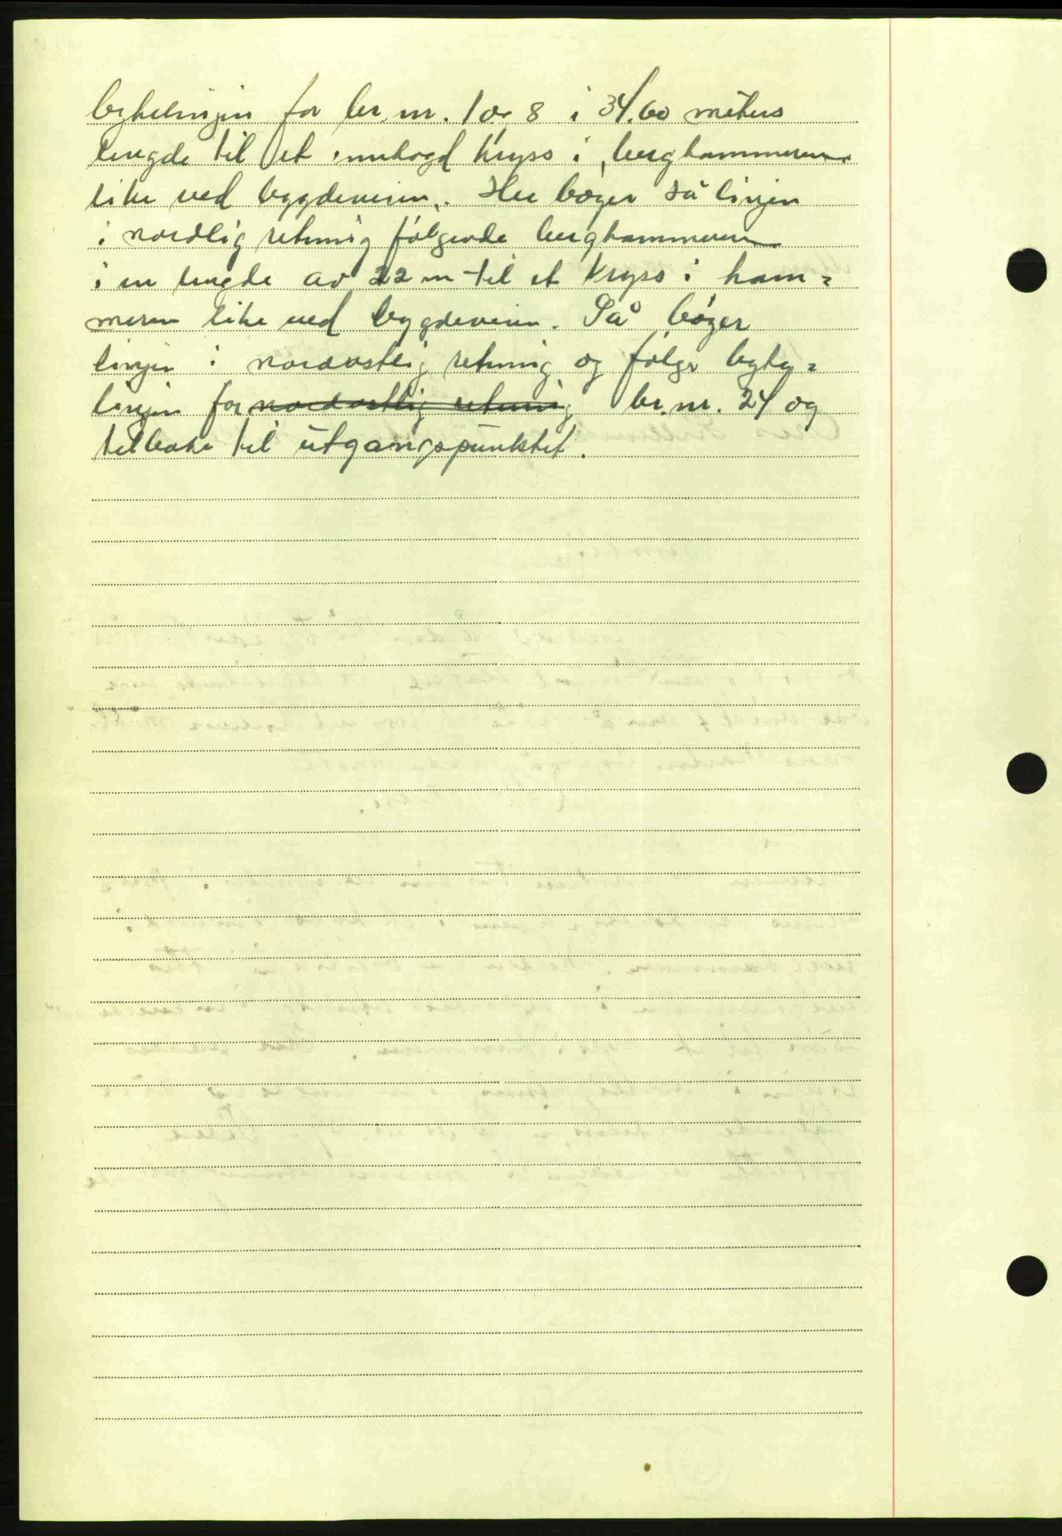 bytelinjen for br. nr. 1 og 8 i 34.60 meters
lengde til et innhogd kryss i berghammeren
like ved bygdeveien. Her bøger så linjen
i nordlig retning følgende berghammeren
i en lengde av 22 m til et kryss i ham=
meren like ved bygdeveien. Så bøger
linjen i nordostlig retning og følger byte=
linjen for nordostlig retning br. nr. 24 og
tilbake til utgangspunktet.